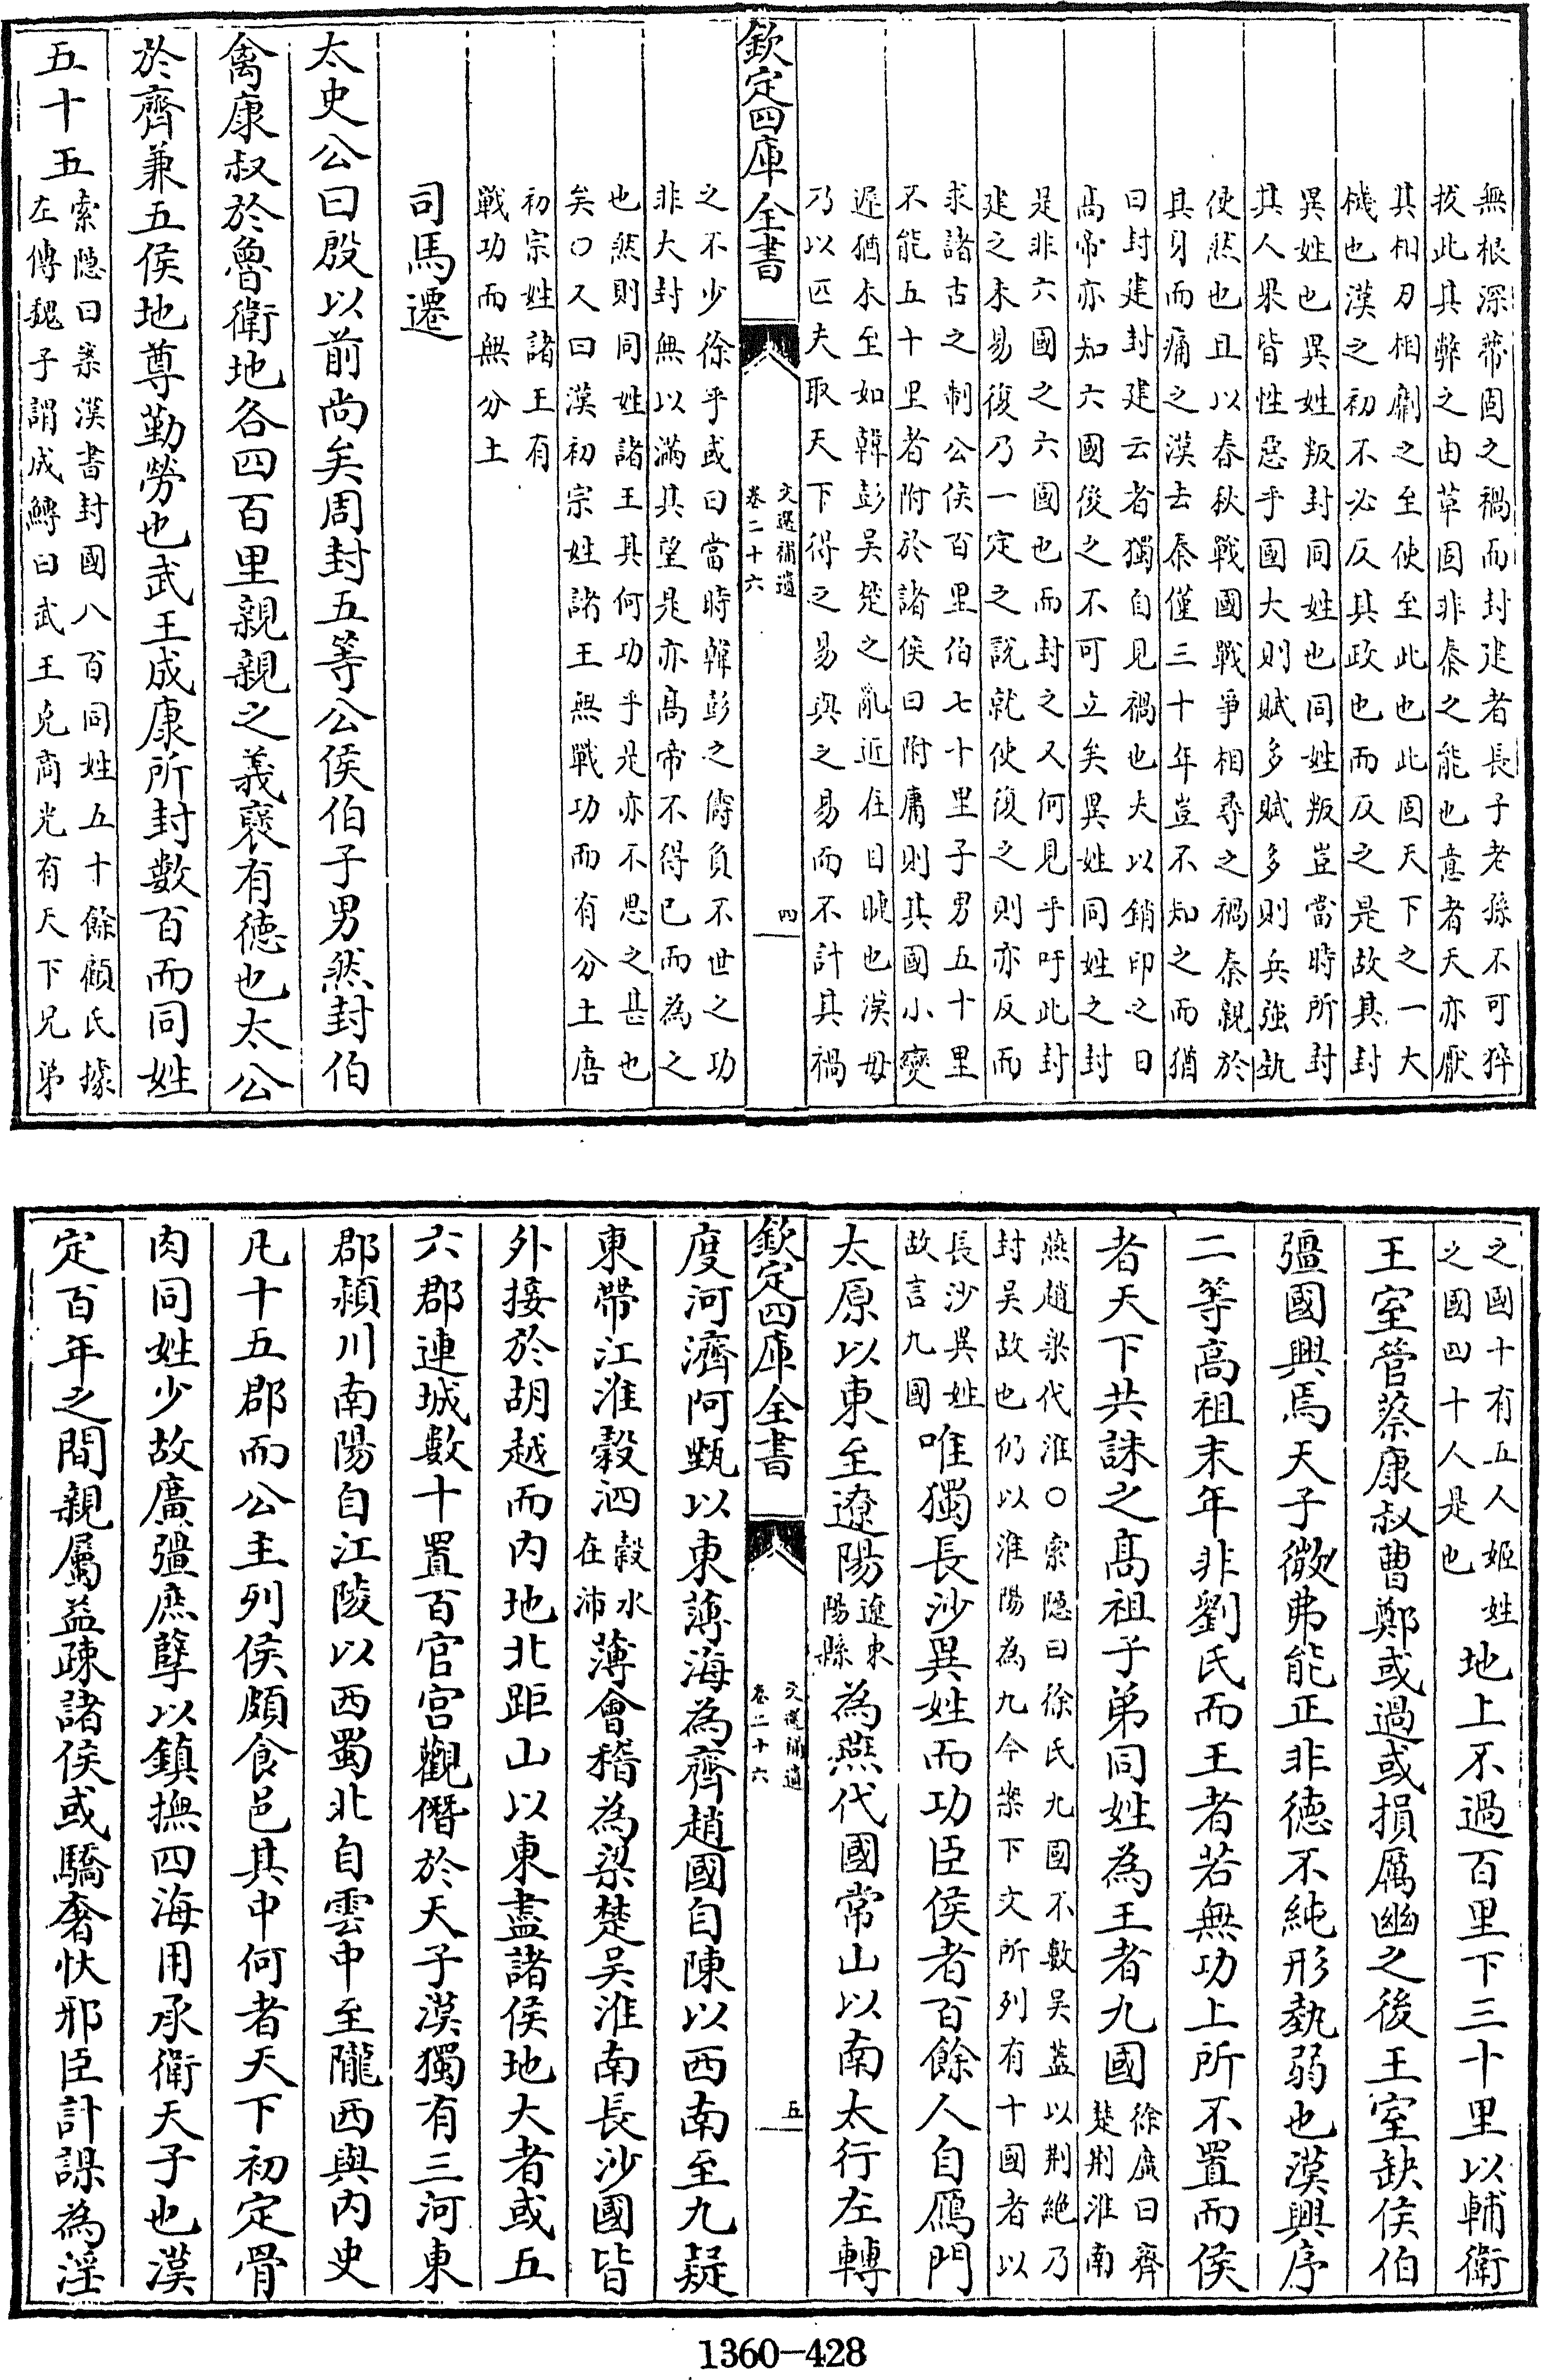 無根深蔕固之禍而封建者長子老孫不可猝
拔此其弊之由草固非秦之能也意者天亦厭
其相刃相劘之至使至此也此固天下之一大
機也漢之初不必反其政也而反之是故其封
異姓也異姓叛封同姓也同姓叛豈當時所封
其人果皆性惡乎國大則賦多賦多則兵強埶
使然也且以春秋戰國戰爭相尋之禍秦親於
其身而痛之漢去秦僅三十年豈不知之而猶
曰封建封建云者獨自見禍也夫以銷印之日
高帝亦知六國後之不可立矣異姓同姓之封
是非六國之六國也而封之又何見乎吁此封
建之未易復乃一定之說就使復之則亦反而
求諸古之制公侯百里伯七十里子男五十里
不能五十里者附於諸侯曰附庸則其國小變
遲猶未至如韓彭吳楚之亂近在目睫也漢毋
乃以匹夫取天下得之易與之易而不計其禍
欽定四庫全書
文選補遺
卷二十六
四
之不少徐乎或曰當時韓彭之儔負不世之功
非大封無以滿其望是亦高帝不得已而為之
也然則同姓諸王其何功乎是亦不思之甚也
矣○又曰漢初宗姓諸王無戰功而有分土唐
初宗姓諸王有
戰功而無分土
司馬遷
太史公曰殷以前尚矣周封五等公侯伯子男然封伯
禽康叔於魯衛地各四百里親親之義襃有德也太公
於齊兼五侯地尊勤勞也武王成康所封數百而同姓
五十五
索隱曰案漢書封國八百同姓五十餘顧氏據
左傳魏子謂成鱄曰武王克商光有天下兄弟
之國十有五人姬姓
之國四十人是也
地上不過百里下三十里以輔衛
王室管蔡康叔曹鄭或過或損厲幽之後王室缺侯伯
彊國興焉天子微弗能正非德不純形埶弱也漢興序
二等高祖末年非劉氏而王者若無功上所不置而侯
者天下共誅之高祖子弟同姓為王者九國
徐廣曰齊
楚荆淮南
燕趙梁代淮○索隱曰徐氏九國不數吳蓋以荆絶乃
封吳故也仍以淮陽為九今案下文所列有十國者以
長沙異姓
故言九國
唯獨長沙異姓而功臣侯者百餘人自鴈門
太原以東至遼陽
遼東
陽縣
為燕代國常山以南太行左轉
欽定四庫全書
文選補遺
卷二十六
五
度河濟阿甄以東薄海為齊趙國自陳以西南至九疑
東帶江淮穀泗
穀水
在沛
薄會稽為梁楚吳淮南長沙國皆
外接於胡越而内地北距山以東盡諸侯地大者或五
六郡連城數十置百官宫觀僭於天子漢獨有三河東
郡潁川南陽自江陵以西蜀北自雲中至隴西與内史
凡十五郡而公主列侯頗食邑其中何者天下初定骨
肉同姓少故廣彊庶孽以鎮撫四海用承衛天子也漢
定百年之間親屬益疎諸侯或驕奢忕邪臣計謀為淫
1360-428